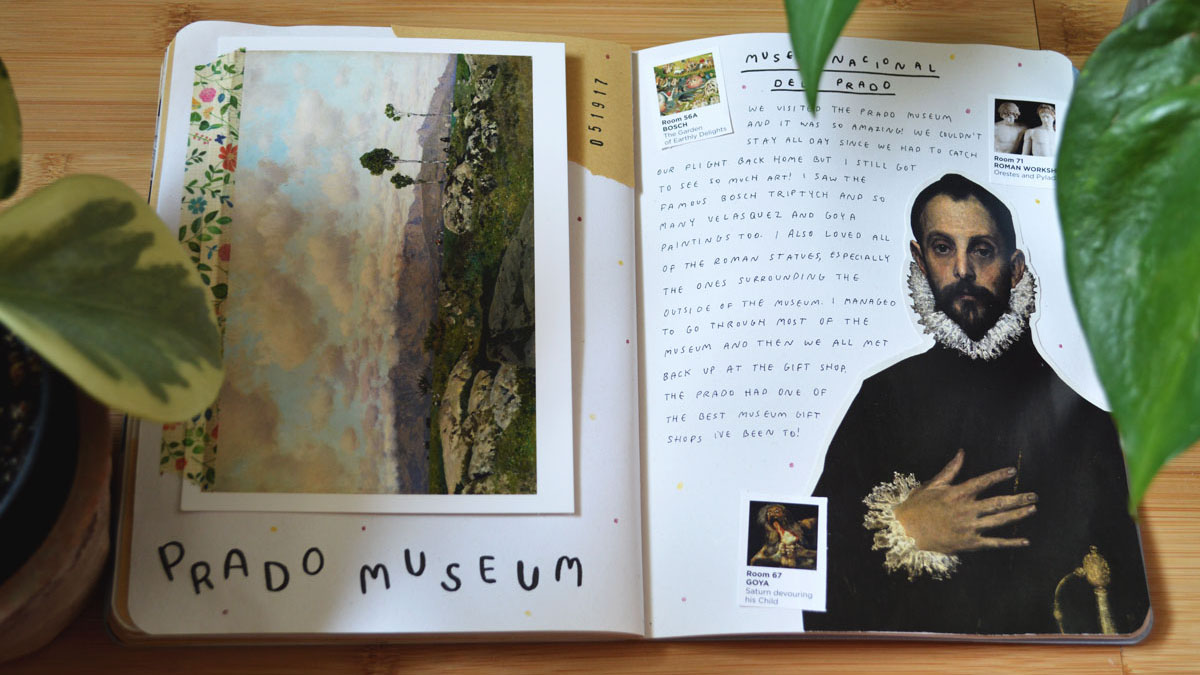 051917
PRADO MUSEUM
Room 56A
BOSCH
The Garden
of Earthly Delights
NACIONAL
DEL PRADO
Room 71
ROMAN
Orestes and
WE VISITED THE PRADO MUSEUM
AND IT WAS SO AMAZING! WE COULDN'T
STAY ALL DAY SINCE WE HAD TO CATCH
OUR FLIGHT BACK HOME BUT I STILL GOT
TO SEE SO MUCH ART! I SAW THE
FAMOUS BOSCH TRIPTYCH AND SO
MANY VELASQUEZ AND GOYA
PAINTINGS TOO. I ALSO LOVED ALL
OF THE ROMAN STATUES, ESPECIALLY
THE ONES SURROUNDING THE
OUTSIDE OF THE MUSEUM. I MANAGED
TO GO THROUGH MOST OF THE
MUSEUM AND THEN WE ALL MET
BACK UP AT THE GIFT SHOP.
THE PRADO HAD ONE OF
THE BEST MUSEUM GIFT
SHOPS I'VE BEEN TO!
Room 67
GOYA
Saturn devouring
his Child